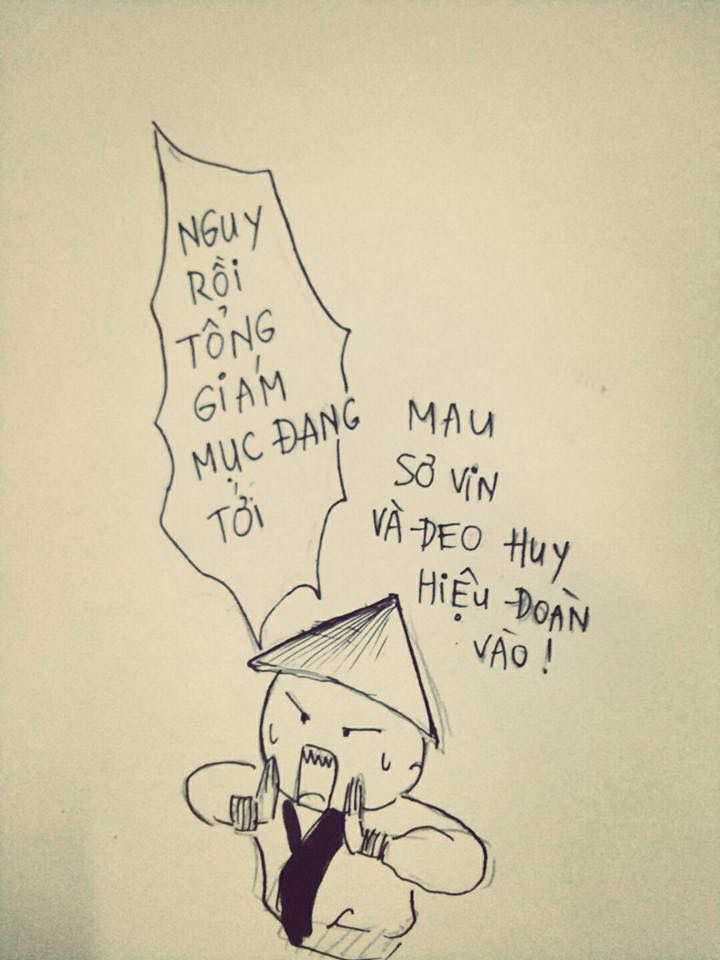 NGUY
RỒI
TỔNG
GIÁM
MỤC ĐANG
TỚI
MAU
SƠ VIN
VÀ ĐEO HUY
HIỆU ĐOÀN
VÀO !